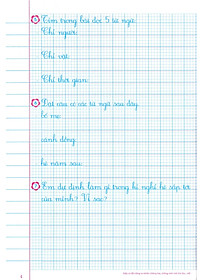 5 Tìm trong bài đọc 5 từ ngữ:
Chỉ người:
Chỉ vật:
Chỉ thời gian:
6 Đặt câu có các từ ngữ sau đây:
bố mẹ:
cánh đồng:
hè năm sau:
7 Em dự định làm gì trong kì nghỉ hè sắp tới
của mình? Vì sao?
4